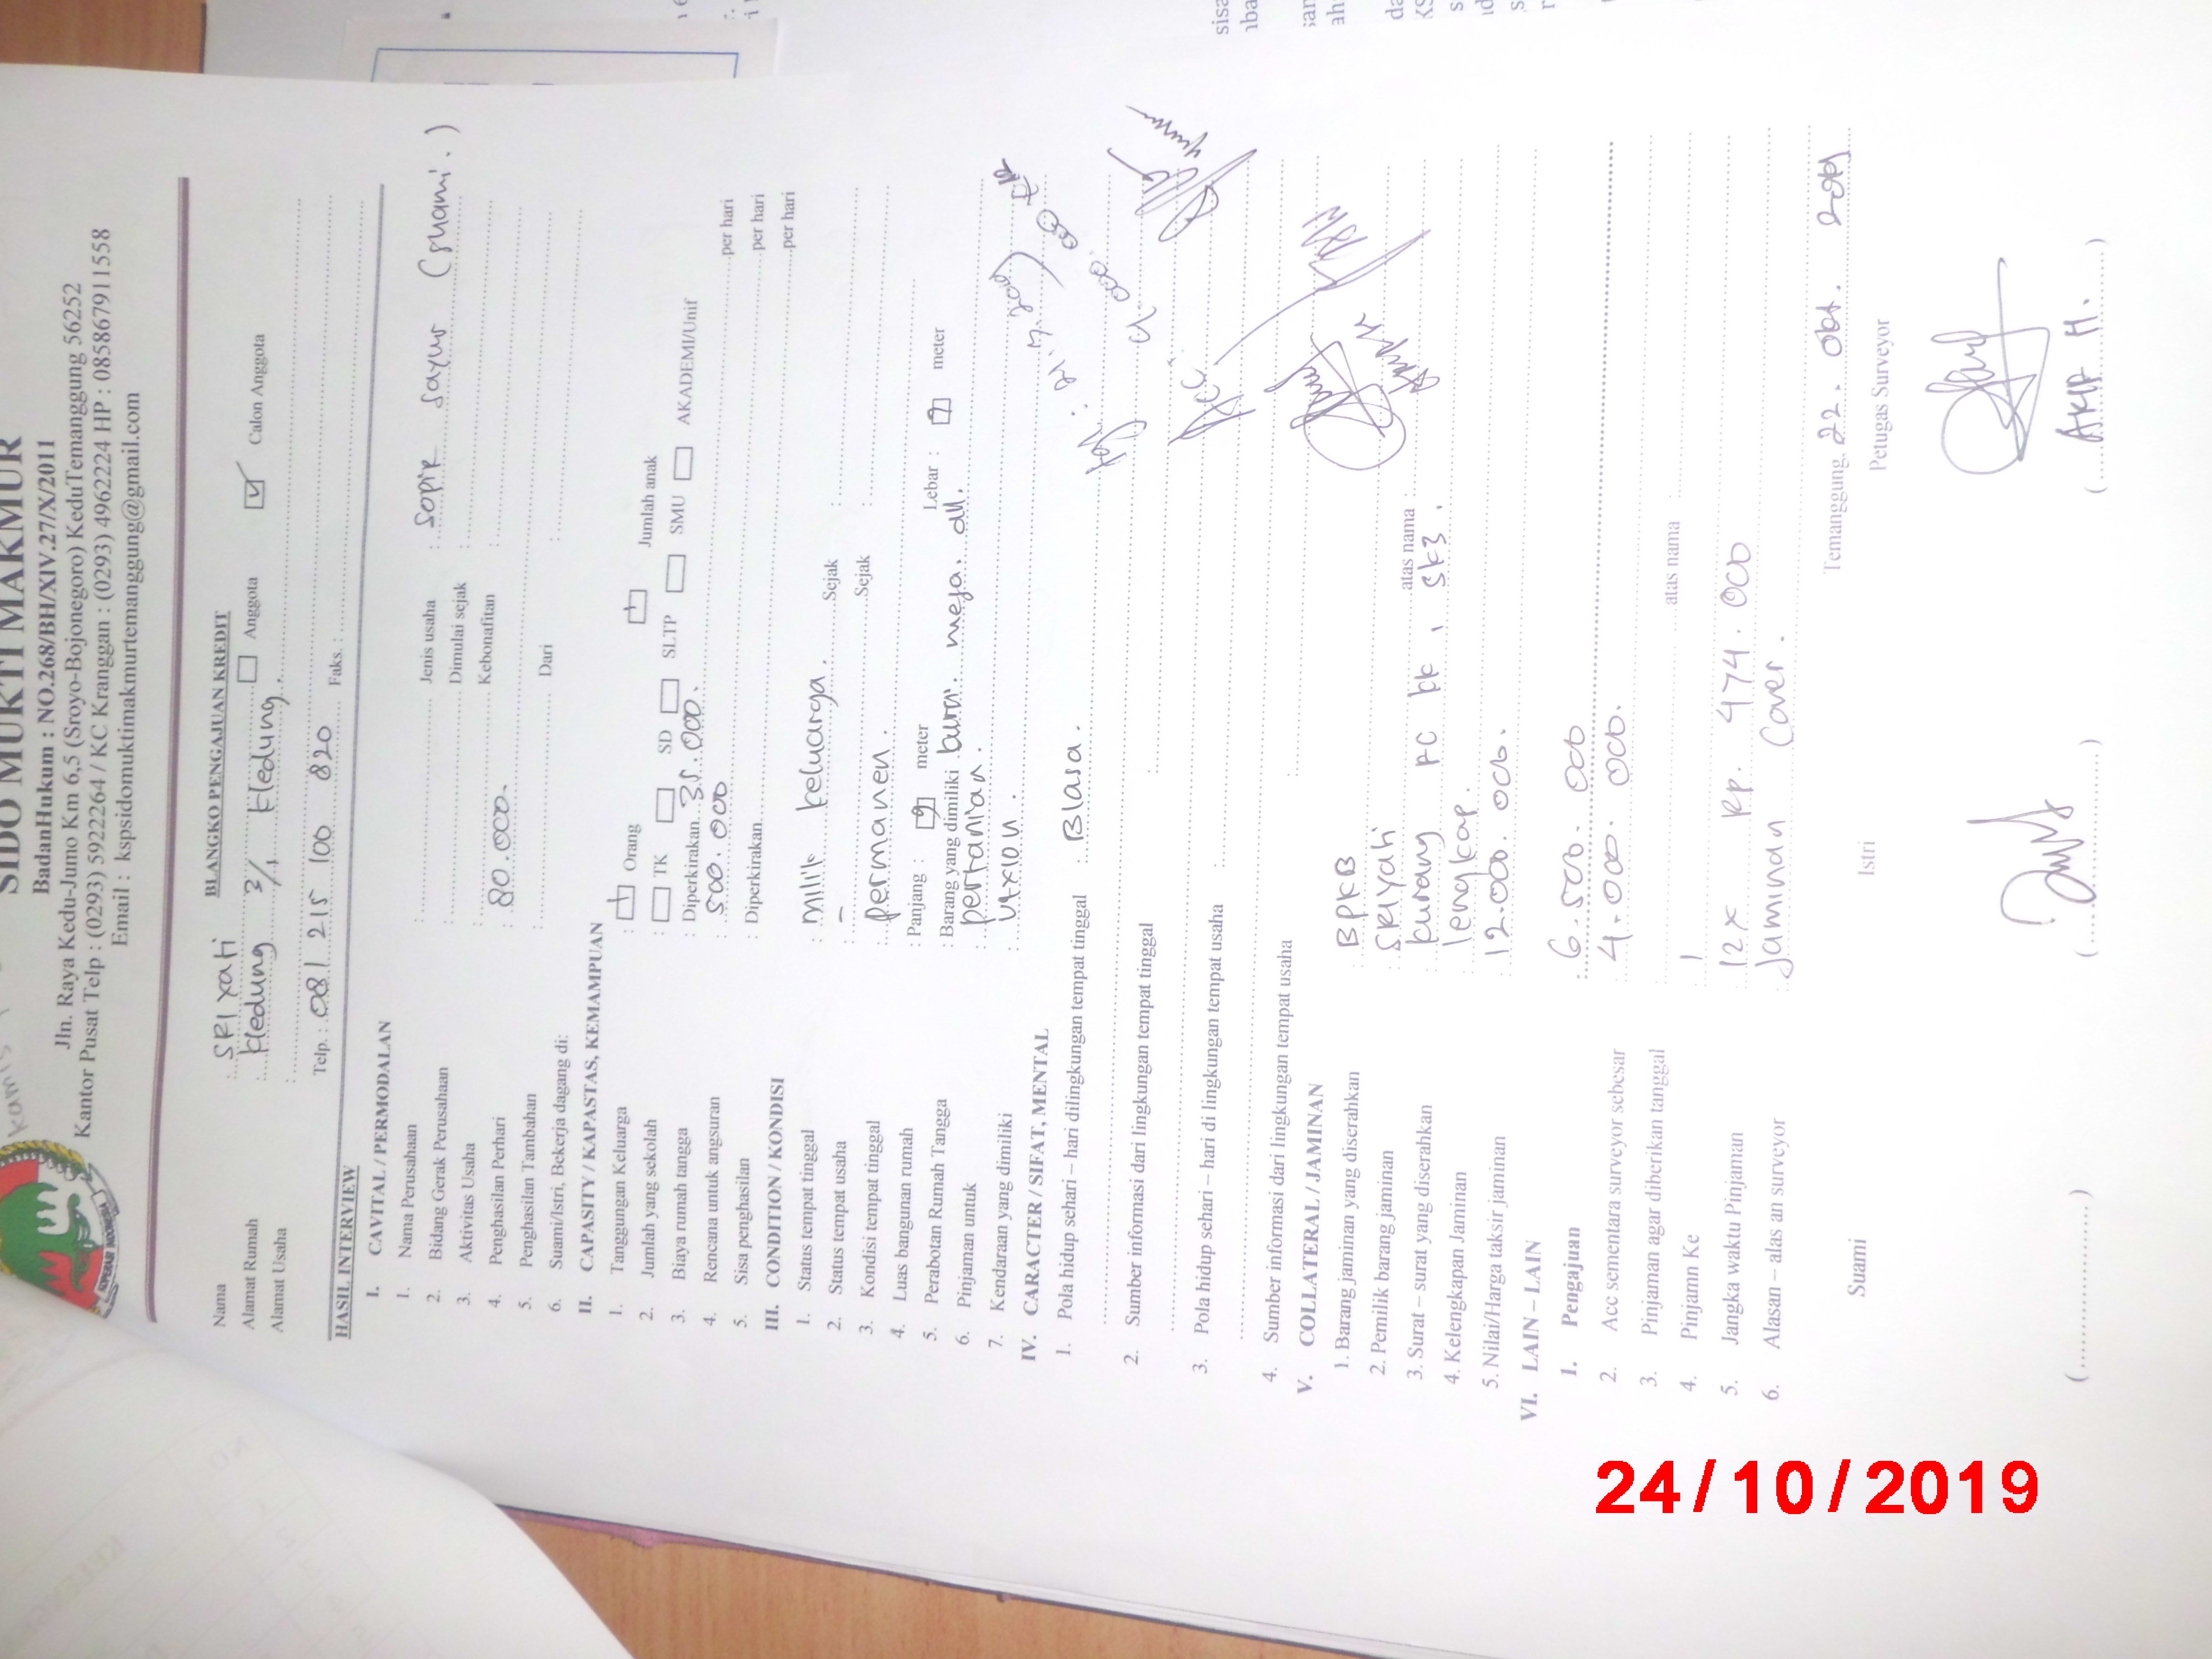 SIDO MUKTI MAKMUR
BadanHukum : NO.268/BH/XIV.27/X/2011
Jln. Raya Kedu-Jumo Km 6,5 (Sroyo-Bojonegoro) KeduTemanggung 56252
Kantor Pusat Telp : (0293) 5922264 / KC Kranggan : (0293) 4962224 HP : 085867911558
Email : kspsidomuktimakmurtemanggung@gmail.com
BLANGKO PENGAJUAN KREDIT
Nama : SRI YATI
Alamat Rumah : Kledung 3/1 Kledung. Anggota Calon Anggota
Alamat Usaha :
Telp. : 081 215 100 820 Faks. :
HASIL INTERVIEW
I. CAVITAL / PERMODALAN
1. Nama Perusahaan : Jenis usaha : Sopir Sayur (suami.)
2. Bidang Gerak Perusahaan : Dimulai sejak :
3. Aktivitas Usaha : Kebonafitan :
4. Penghasilan Perhari : 80.000.
5. Penghasilan Tambahan : Dari :
6. Suami/Istri, Bekerja dagang di:
II. CAPASITY / KAPASTAS, KEMAMPUAN
1. Tanggungan Keluarga : Orang Jumlah anak
2. Jumlah yang sekolah : TK SD SLTP SMU AKADEMI/Unif
3. Biaya rumah tangga : Diperkirakan 35.000. per hari
4. Rencana untuk angsuran : 500.000 per hari
5. Sisa penghasilan : Diperkirakan per hari
III. CONDITION / KONDISI
1. Status tempat tinggal : milik keluarga. Sejak :
2. Status tempat usaha : - Sejak :
3. Kondisi tempat tinggal : permanen.
4. Luas bangunan rumah : Panjang : 9 meter Lebar : 7 meter
5. Perabotan Rumah Tangga : Barang yang dimiliki kursi. meja. dll.
6. Pinjaman untuk : pertanian.
7. Kendaraan yang dimiliki : Utxion.
IV. CARACTER / SIFAT, MENTAL
1. Pola hidup sehari – hari dilingkungan tempat tinggal : Biasa.
2. Sumber informasi dari lingkungan tempat tinggal :
3. Pola hidup sehari – hari di lingkungan tempat usaha :
4. Sumber informasi dari lingkungan tempat usaha :
Acc.
V. COLLATERAL / JAMINAN
1. Barang jaminan yang diserahkan : BPKB
2. Pemilik barang jaminan : SRIYati
3. Surat – surat yang diserahkan : kurang FC KK , SK3. atas nama :
4. Kelengkapan Jaminan : lengkap.
5. Nilai/Harga taksir jaminan : 12.000.000.
VI. LAIN – LAIN
1. Pengajuan : 6.500.000
2. Acc sementara surveyor sebesar : 4.000.000.
3. Pinjaman agar diberikan tanggal : atas nama :
4. Pinjamn Ke : 1
5. Jangka waktu Pinjaman : 12x Rp. 474.000
6. Alasan – alas an surveyor : Jaminan Cover.
Temanggung, 22. Okt. 2019
Suami Istri Petugas Surveyor
(....................) (....................) (AKHP H.)
24/10/2019